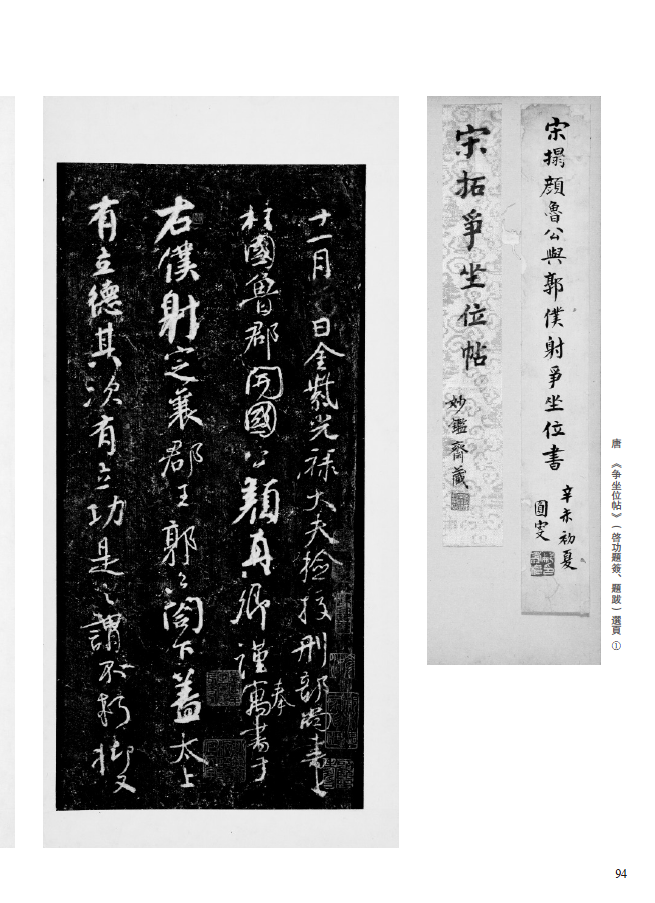 宋搨顔魯公與郭僕射爭坐位書
辛未初夏
宋拓爭坐位帖
妙鑑齋藏
十一月 日金紫光禄大夫撿挍刑部尚書上
柱國魯郡開國公顔真卿謹奉寓書于
右僕射定襄郡王郭公閤下蓋太上
有立德其次有立功是之謂不朽抑又
唐 《争坐位帖》（啓功題簽、題跋）選頁 ①
94